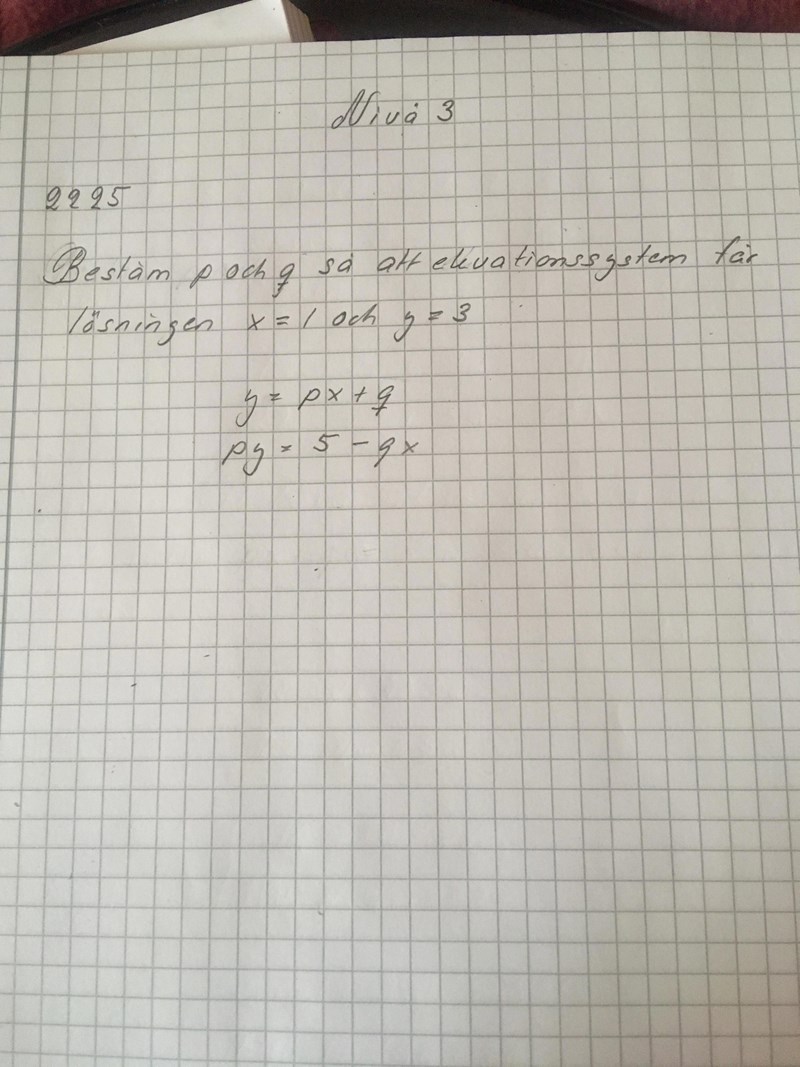 Nivå 3
2225
Bestäm p och q så att ekvationssystem får
lösningen x = 1 och y = 3
y = px + q
py = 5 - qx